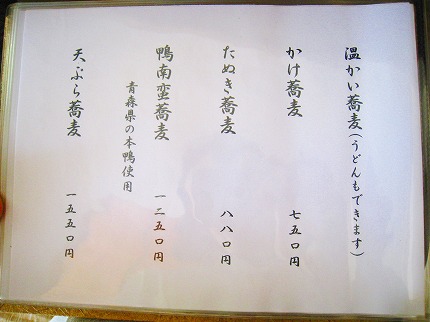 温かい蕎麦(うどんもできます)
かけ蕎麦 七五〇円
たぬき蕎麦 八八〇円
鴨南蛮蕎麦 一二五〇円
青森県の本鴨使用
天ぷら蕎麦 一五五〇円